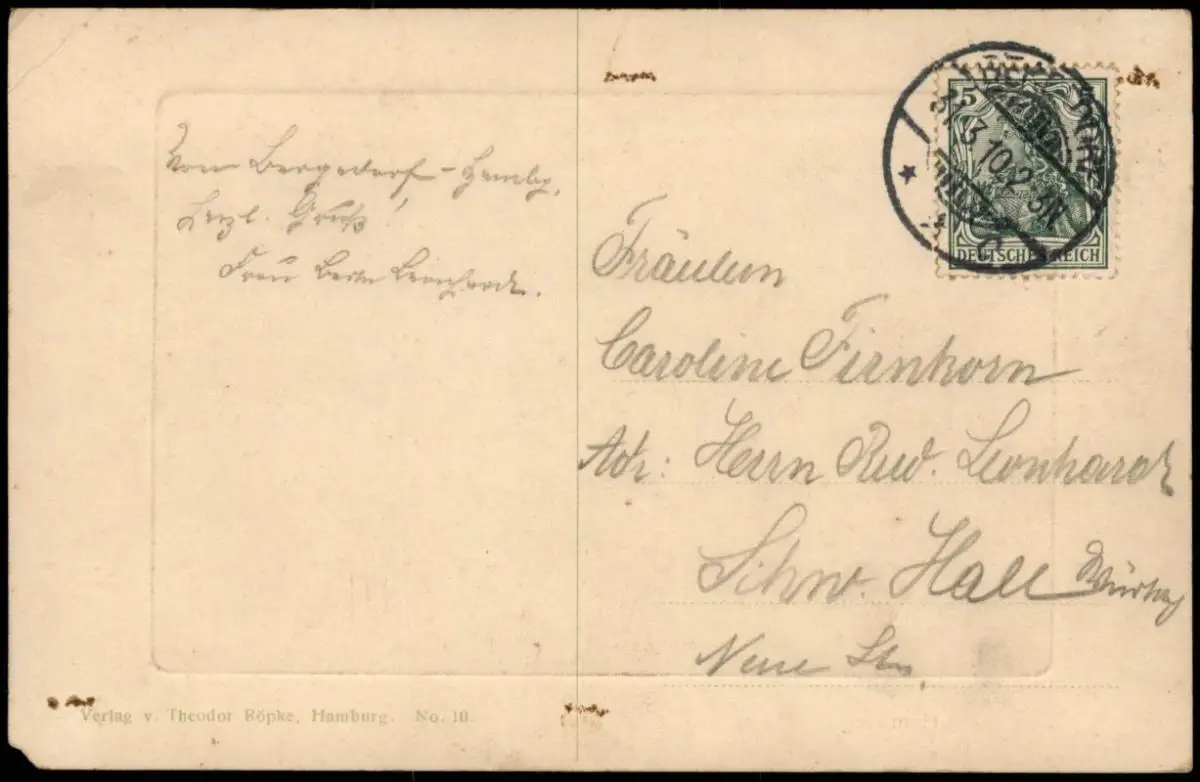 Von Bergedorf - Hambg.
Herzl. Gruß!
Frau Leonhardt.
Fräulein
Caroline Firnhorn
Adr: Herrn Rud. Leonhardt
Schw. Hall Württbg
Neue Str.
5
DEUTSCHES REICH
31.3.10.2-3N
Verlag v. Theodor Röpke, Hamburg. No. 10.